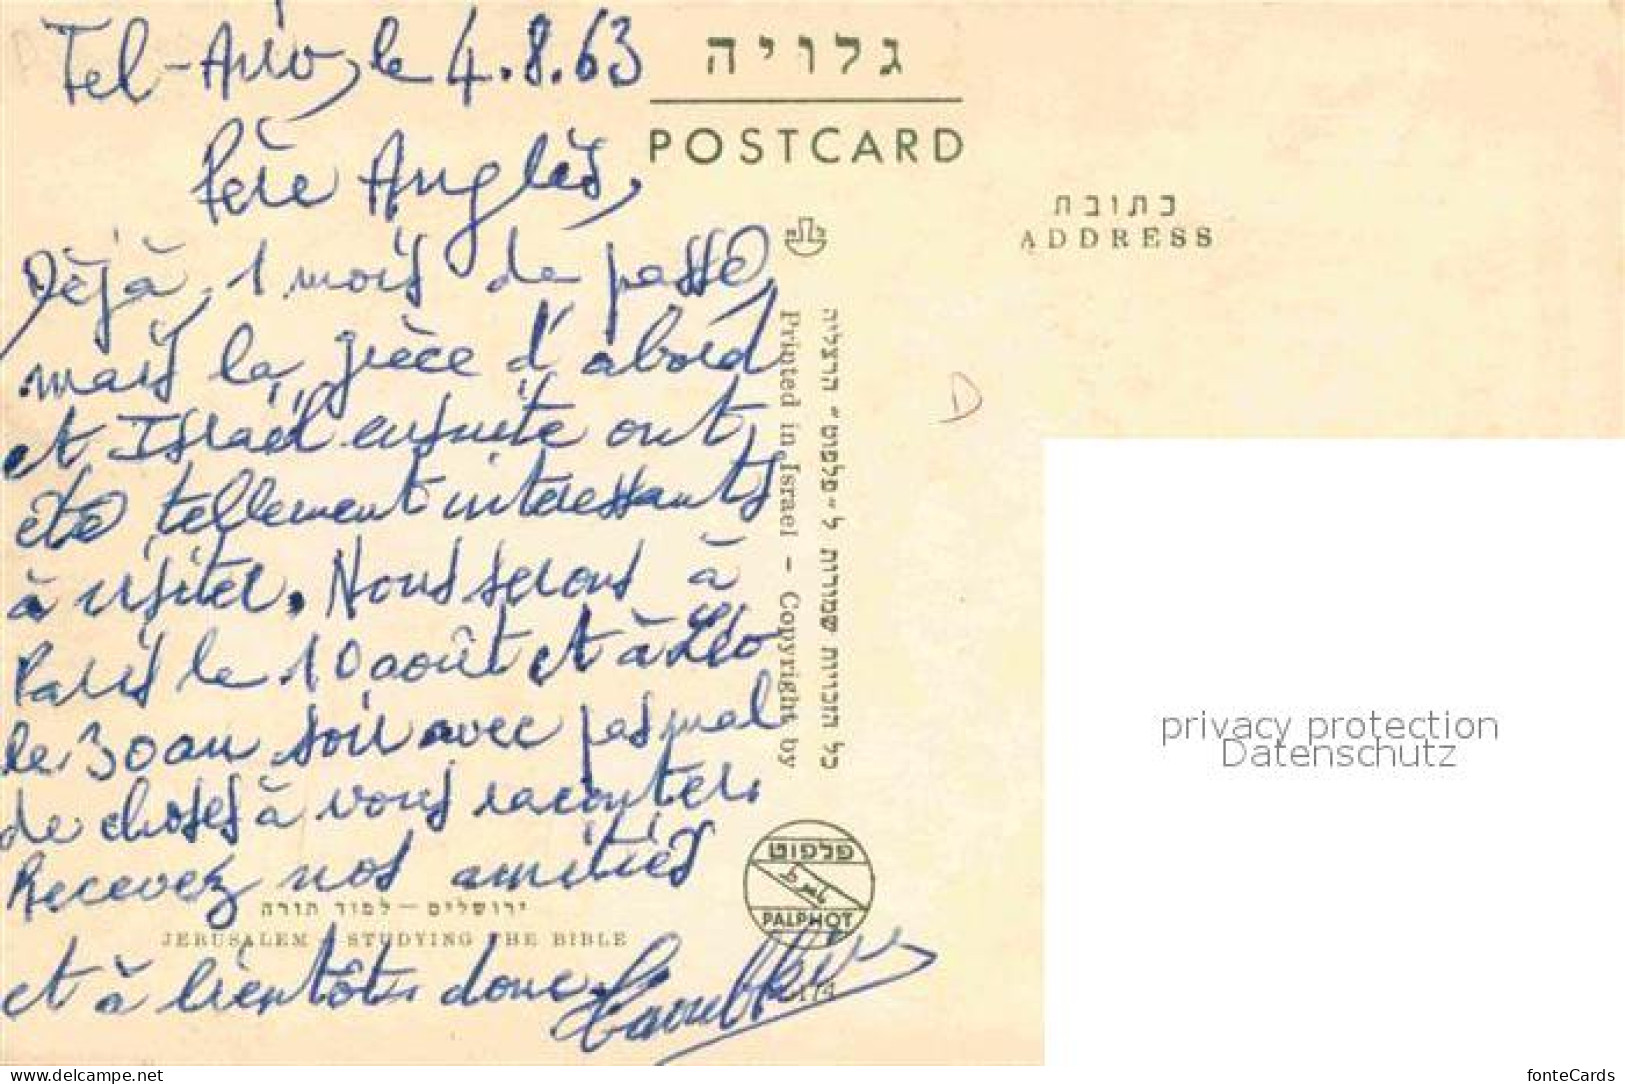 Tel-Aviv, le 4.8.63
Père Anglès,
Déjà, 1 mois de passé,
mais la grèce d'abord
et Israël ensuite ont
été tellement intéressants
à visiter. Nous serons à
Paris le 10 août et à Léo
le 30 au soir avec pas mal
de choses à vous raconter.
Recevez nos amitiés
et à bientôt donc.
גלויה
POSTCARD
כתובת
ADDRESS
Printed in Israel - Copyright by
כל הזכויות שמורות ל"פלפוט" הרצליה
D
פלפוט
PALPHOT
ירושלים - למוד תורה
JERUSALEM - STUDYING THE BIBLE
privacy protection
Datenschutz
delcampe.net
fonteCards